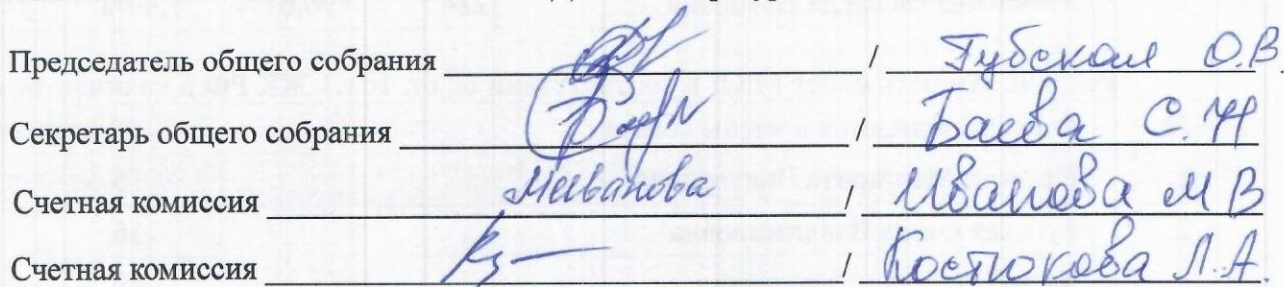 Председатель общего собрания / Губская О.В.
Секретарь общего собрания / Баева С.Н
Счетная комиссия МИванова / Иванова М В
Счетная комиссия / Костюкова Л.А.